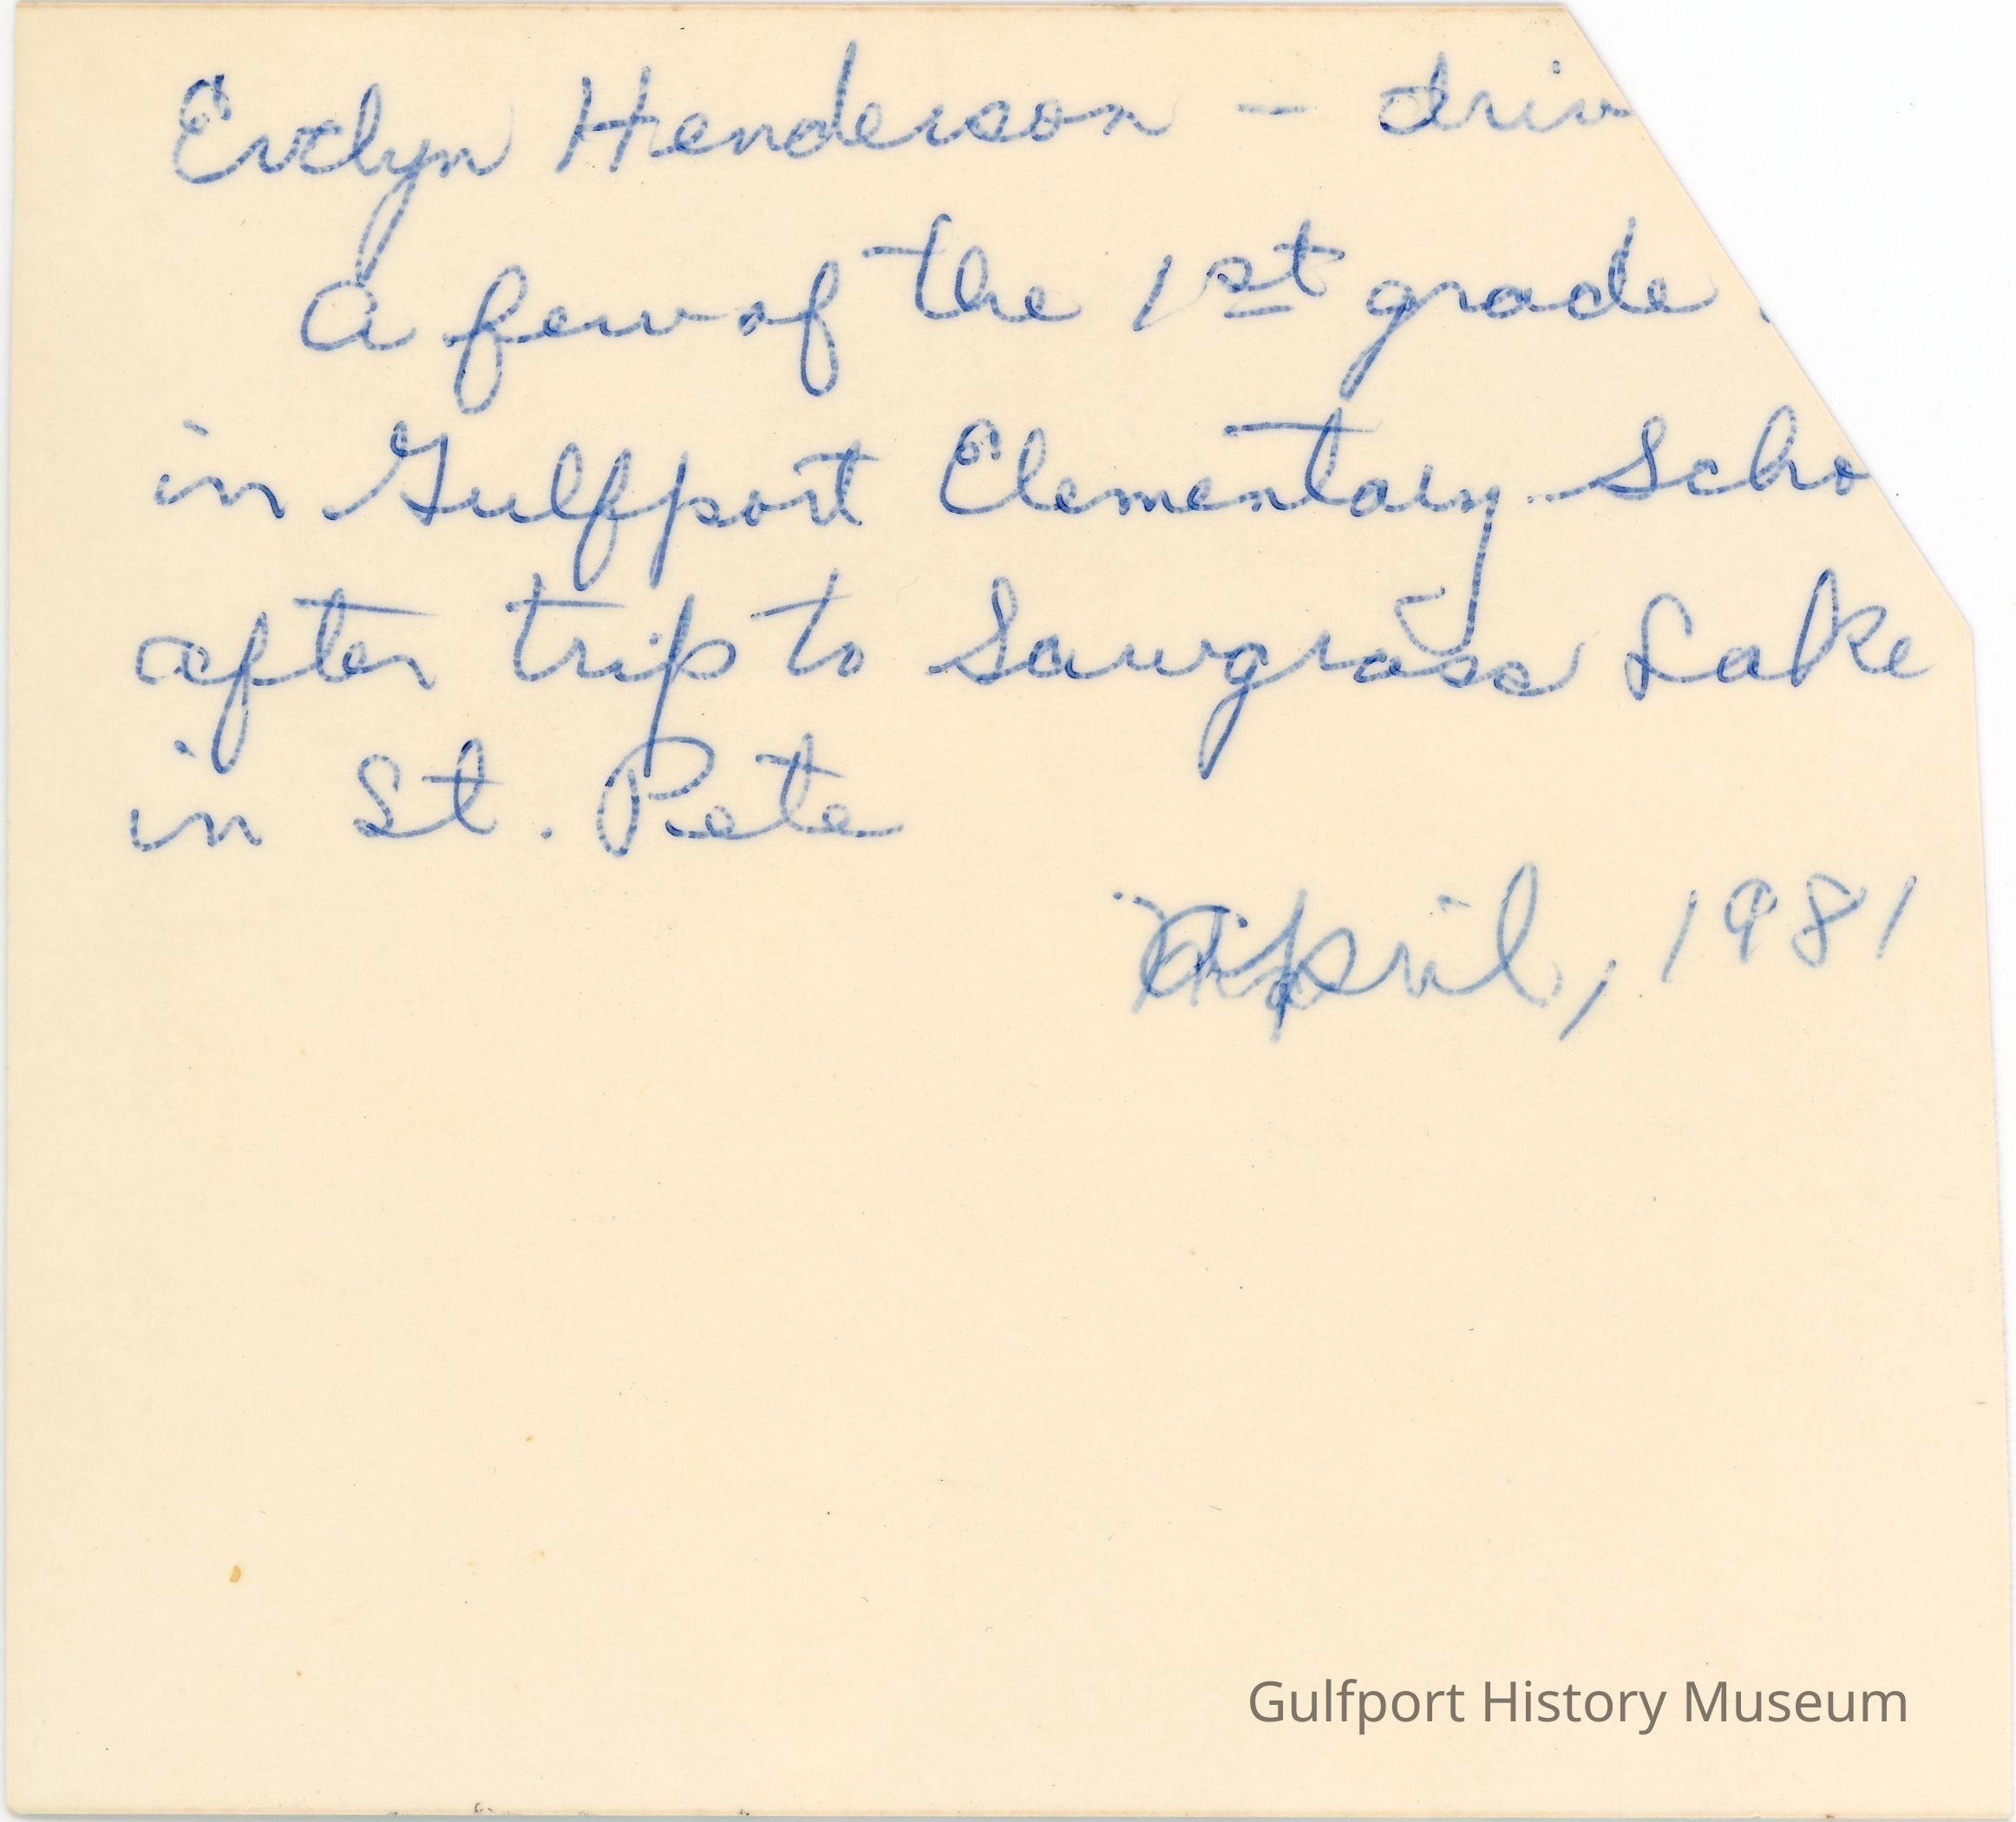 Evelyn Henderson - driv
A few of the 1st grade
in Gulfport Elementary Scho
after trip to Sawgrass Lake
in St. Pete
April, 1981
Gulfport History Museum